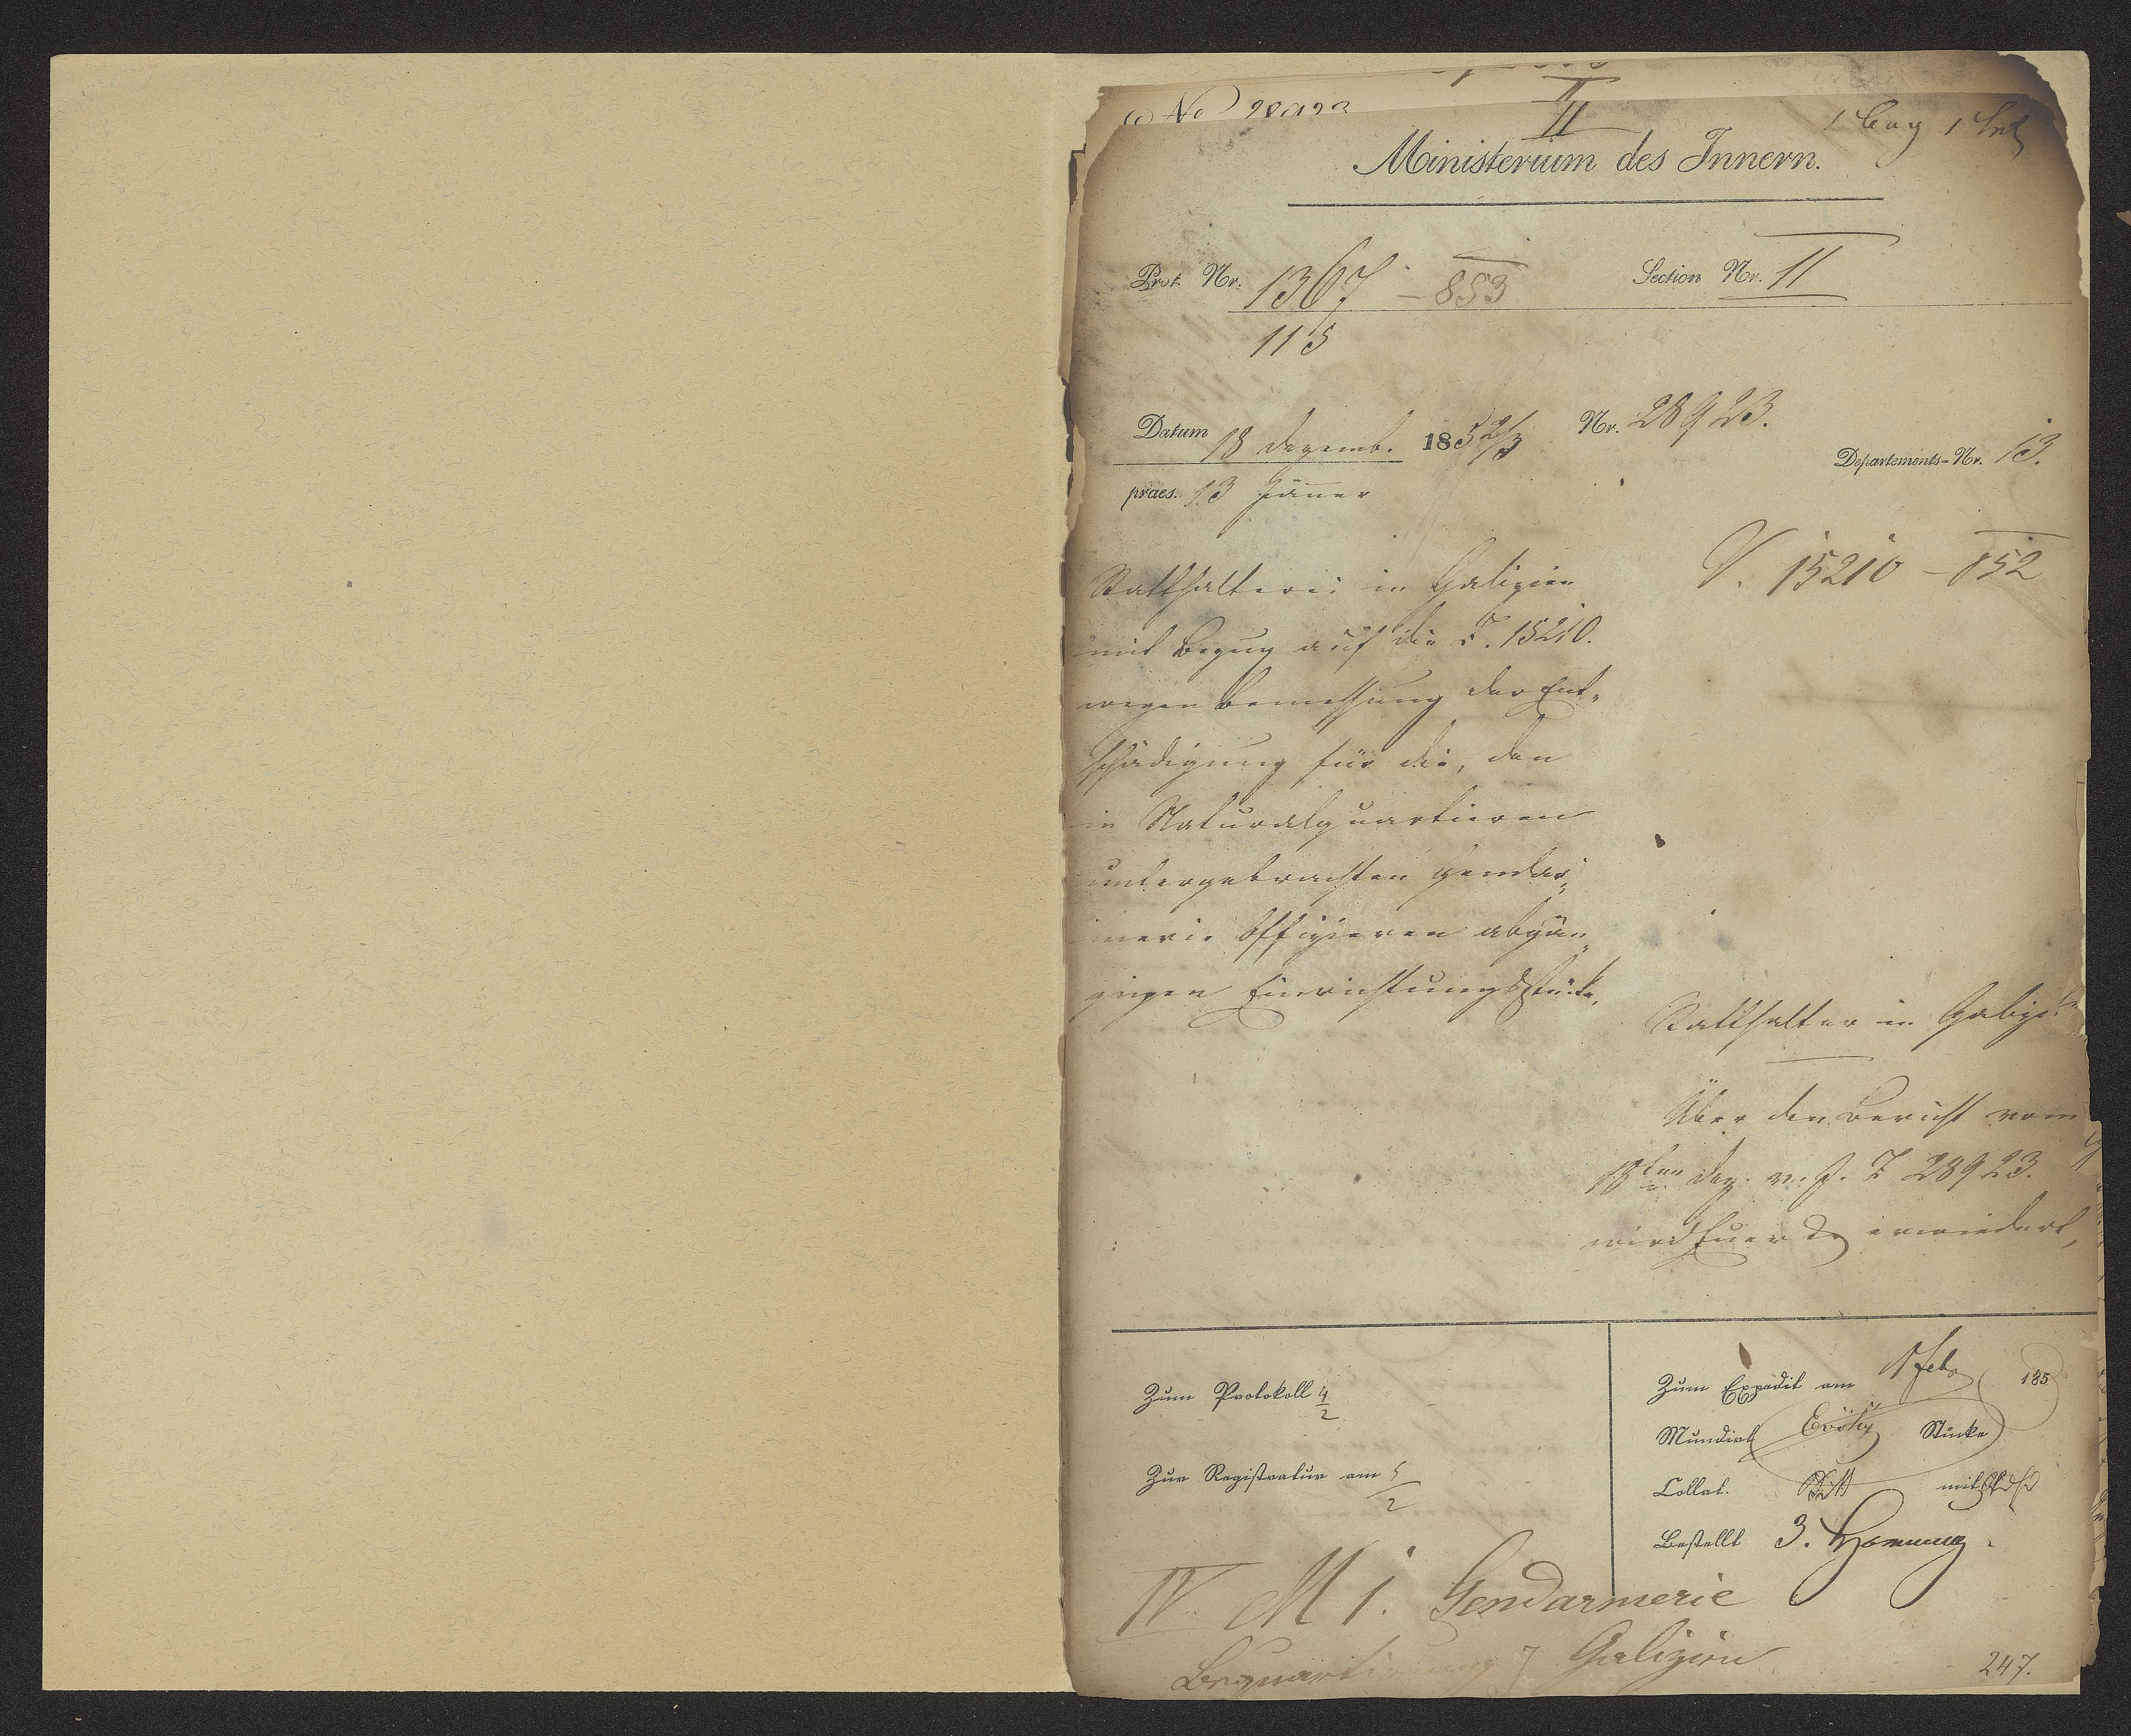 No 28923
II
II
1 Bog 1
Ministerium des Innern.
Prot. Nr. 1367 - 853
Section Nr. 11
115
Datum 18 Dezemb. 1852/3 Nr. 28923.
Departements-Nr. 13.
praes. 13 Jäner
V. 15210 - 852
Statthalterei in Galizien
mit Bezug auf die Z. 15210.
wegen Bemessung der Ent-
schädigung für die, den
in Naturalquartieren
untergebrachten Gendar-
merie Offizieren abgän-
gigen Einrichtungsstücke.
Statthalter in Galizien
Über den Bericht vom
18ten Dez. v. J. Z 28923.
wird Euer erwiedert,
Zum Protokoll 4/2
Zur Registratur am 5/2
Zum Expedit am 1 Feb 185
Mundirt Stücke
Collat. mit
Bestellt 3. Hornung.
IV. M 1. Gendarmerie
Bequartierung Galizien
247.